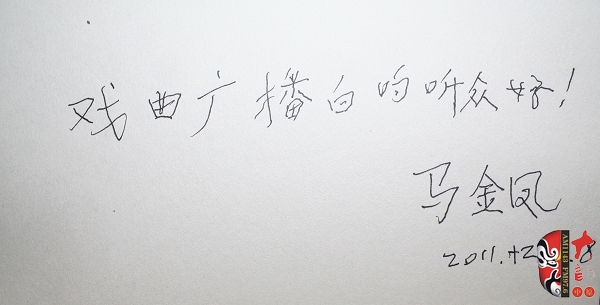 戏曲广播白的听众好!
马金凤
2011.12
8
AM1143 FM97.6